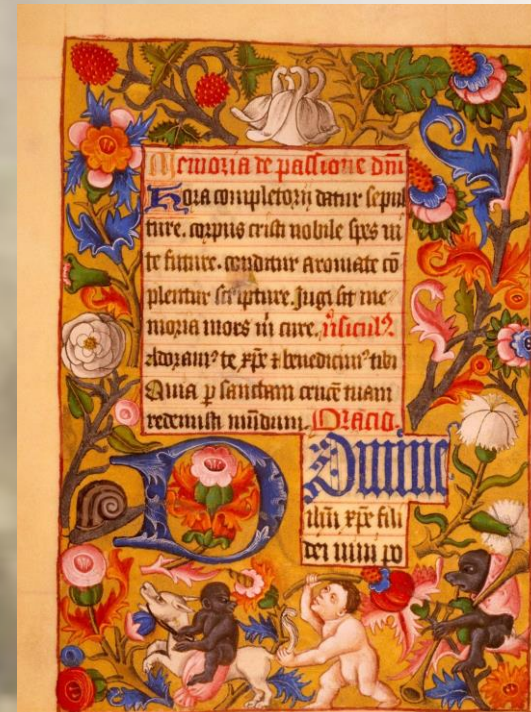 Memoria de passione dnī
Hora completorij datur sepul
ture. corpus cristi nobile spes vi
te future. conditur aromate cō
plentur scripture. Jugi sit me
moria mors in cure. v̄sicul⁹
Adoram⁹ te xp̄e ⁊ benedicim⁹ tibi
Quia p sanctam crucē tuam
redemisti mūdum. Oracio.
Dnīne
ihū xp̄e fili
dei viui po